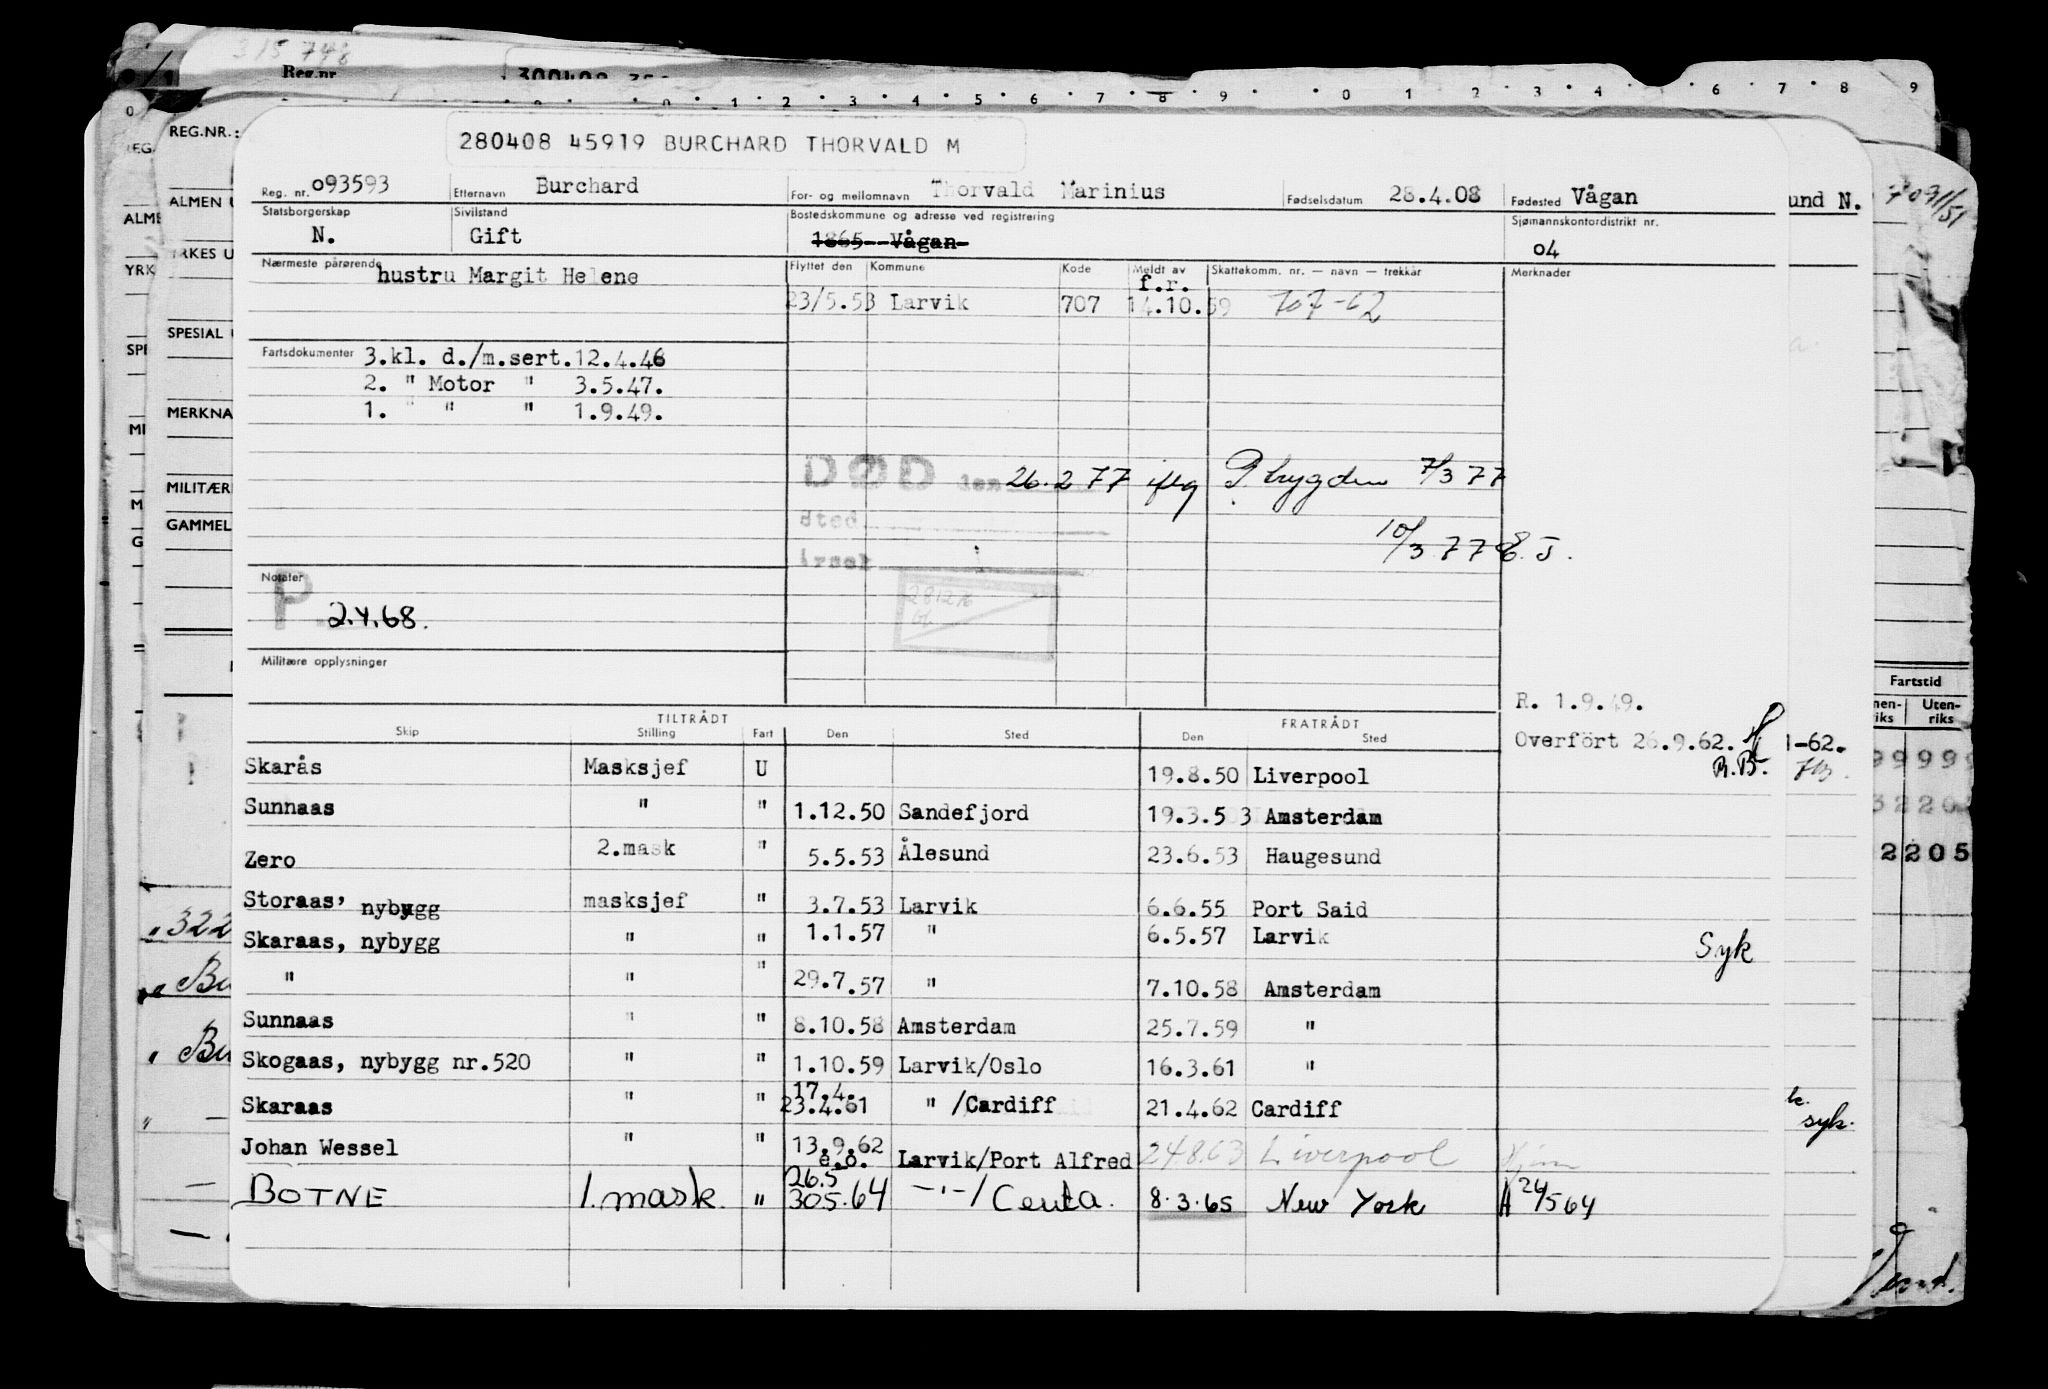 315 748
Reg.nr
0 1 2 3 4 5 6 7 8 9 0 1 2 3 4 5 6 7 8 9
REG.NR.:
280408 45919 BURCHARD THORVALD M
Reg. nr. 093593 Etternavn Burchard For- og mellomnavn Thorvald Marinius Fødselsdatum 28.4.08 Fødested Vågan
und N. 7091/51
ALMEN U
Statsborgerskap Sivilstand Bostedskommune og adresse ved registrering Sjømannskontordistrikt nr.
N. Gift 1865 Vågan 04
YRKES U
Nærmeste pårørende hustru Margit Helene Flyttet den Kommune Kode Meldt av Skattekomm. nr. — navn — trekkår Merknader
f.r.
23/5.53 Larvik 707 14.10.59 707-62
SPESIAL
Fartsdokumenter 3.kl. d./m.sert.12.4.46
2. " Motor " 3.5.47.
1. " " " 1.9.49.
MERKNA
DØD den 26.2 77 iflg P. trygden 7/3 77
MILITÆR
GAMMEL
sted
10/3 77 E. J.
årsak
Notater
P. 2.4.68.
Militære opplysninger
R. 1.9.49.
Fartstid
Uten-
riks
TILTRÅDT FRATRÅDT
Skip Stilling Fart Den Sted Den Sted
Overfört 26.9.62. 1-62.
R.B.
Skarås Masksjef U 19.8.50 Liverpool
Sunnaas " " 1.12.50 Sandefjord 19.3.53 Amsterdam
Zero 2.mask " 5.5.53 Ålesund 23.6.53 Haugesund
2205
Storaas, nybygg masksjef " 3.7.53 Larvik 6.6.55 Port Said
Skaraas, nybygg " " 1.1.57 " 6.5.57 Larvik Syk
" " " 29.7.57 " 7.10.58 Amsterdam
Sunnaas " " 8.10.58 Amsterdam 25.7.59 "
Skogaas, nybygg nr.520 " " 1.10.59 Larvik/Oslo 16.3.61 "
17.4.
Skaraas " " 23.4.61 " /Cardiff 21.4.62 Cardiff
syk.
13.9.62
Johan Wessel " " e.o. Larvik/Port Alfred 24863 Liverpool Hjem
26.5
BOTNE 1. mask. " 30.5.64 —"—/ Ceuta. 8.3.65 New York A 26/5 64